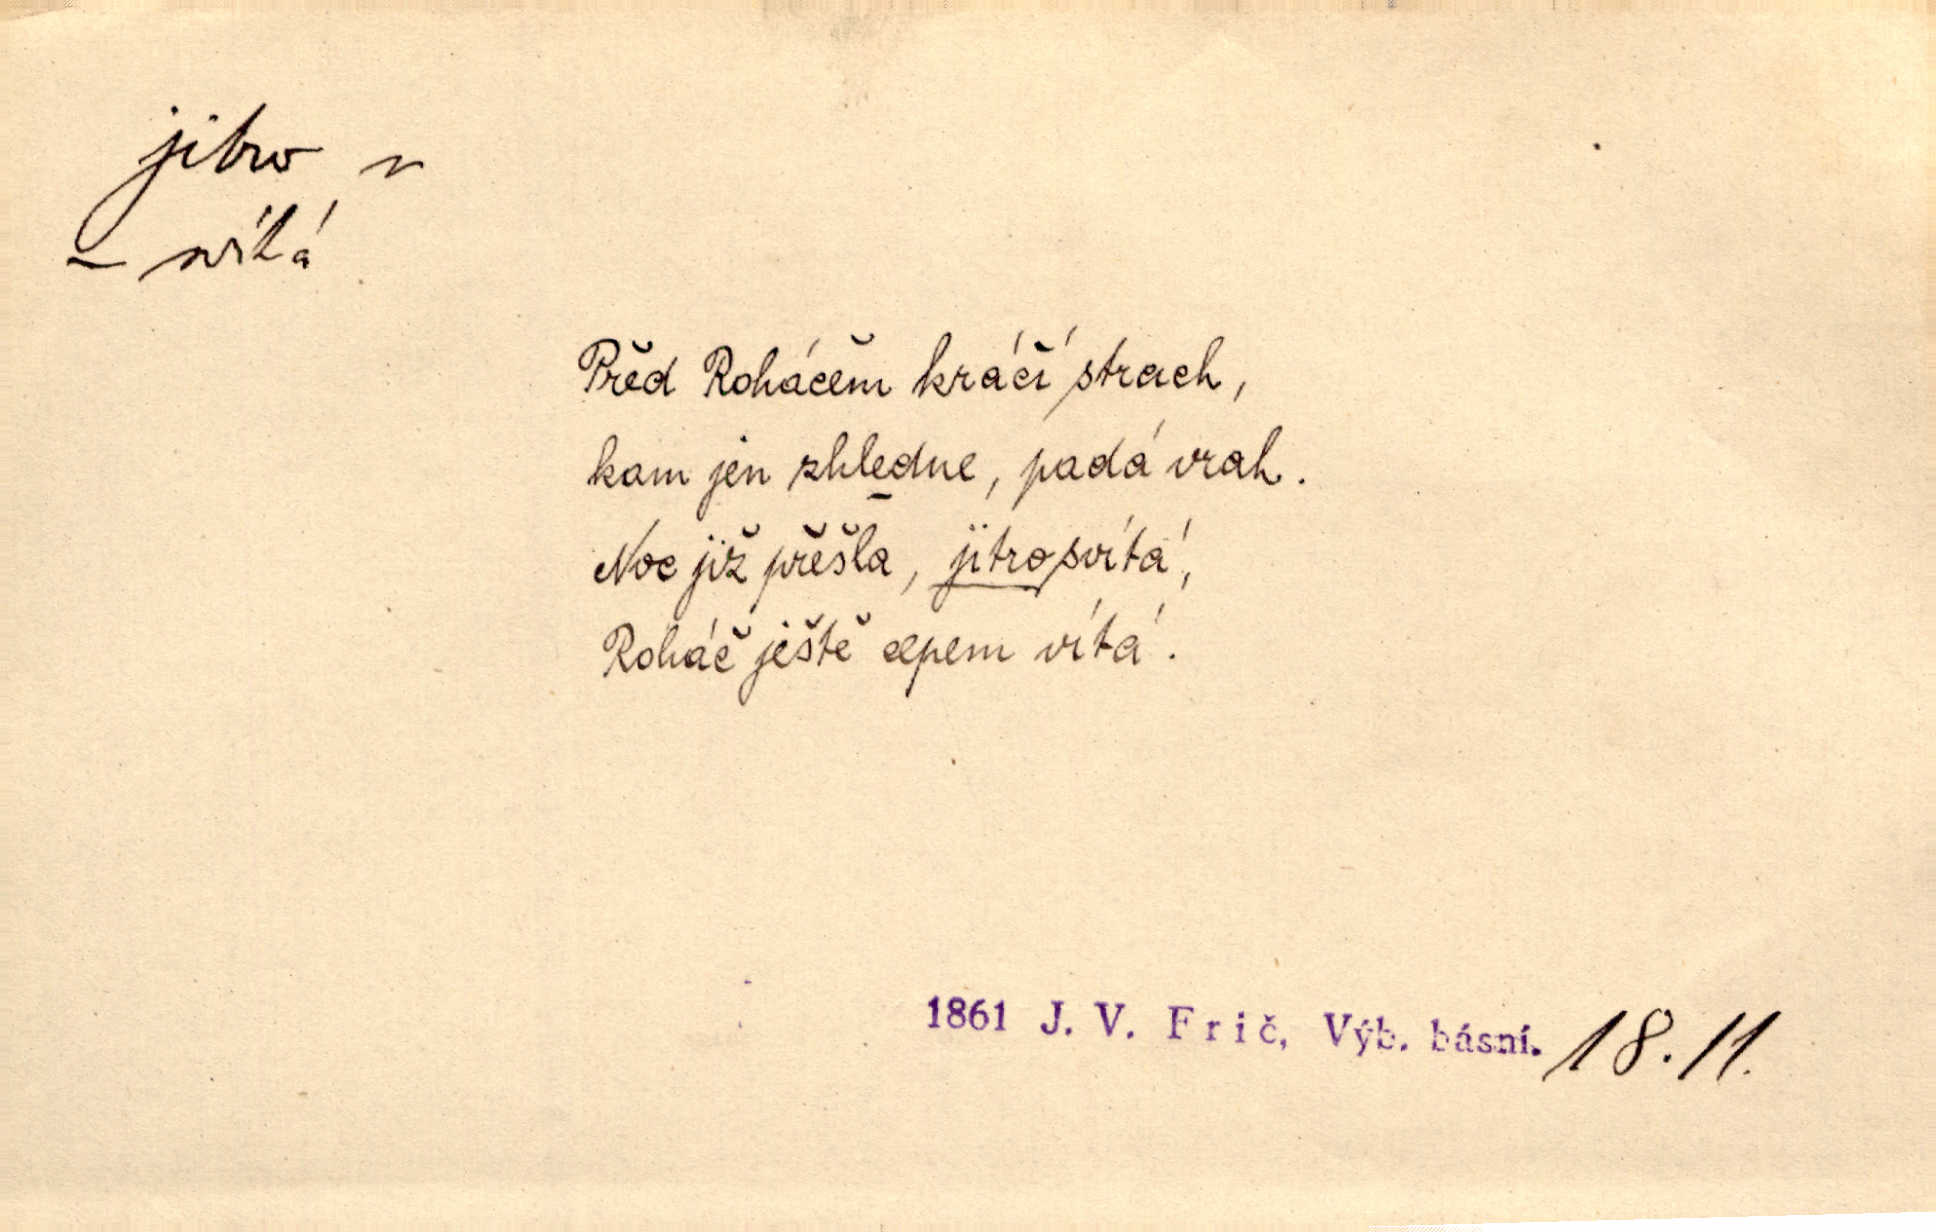 jitro ~
– svítá
Před Roháčem kráčí strach,
kam jen zhledne, padá vrah.
Noc již přešla, jitro svítá,
Roháč ještě cepem vítá.
1861 J. V. Frič, Výb. básní. 18.11.